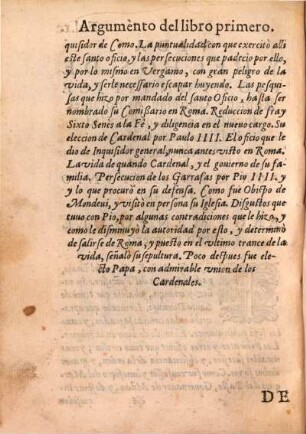 Argumẽto del libro primero.
quisidor de Como. La puntualidad con que exercitò alli
este santo oficio, y las persecuciones que padecio por ello,
y por lo mismo en Vergamo, con gran peligro de la
vida, y serle necessario escapar huyendo. Las pesqui
sas que hizo por mandado del santo Oficio, hasta ser
nombrado su Comissario en Roma. Reduccion de fray
Sixto Senès a la Fè, y diligencia en el nueuo cargo. Su
eleccion de Cardenal por Paulo IIII. El oficio que le
dio de Inquisidor general, nunca antes visto en Roma.
La vida de quando Cardenal, y el gouierno de su fa-
milia. Persecucion de los Garrafas por Pio IIII. y
y lo que procurò en su defensa. Como fue Obispo de
Mondeui, y visitò en persona su Iglesia. Disgustos que
tuuo con Pio, por algunas contradiciones que le hizo, y
como le disminuyò la autoridad por esto, y determinò
de salirse de Roma, y puesto en el vltimo trance de la
vida, señalò su sepultura. Poco despues fue ele-
cto Papa, con admirable vnion de los
Cardenales.
DE